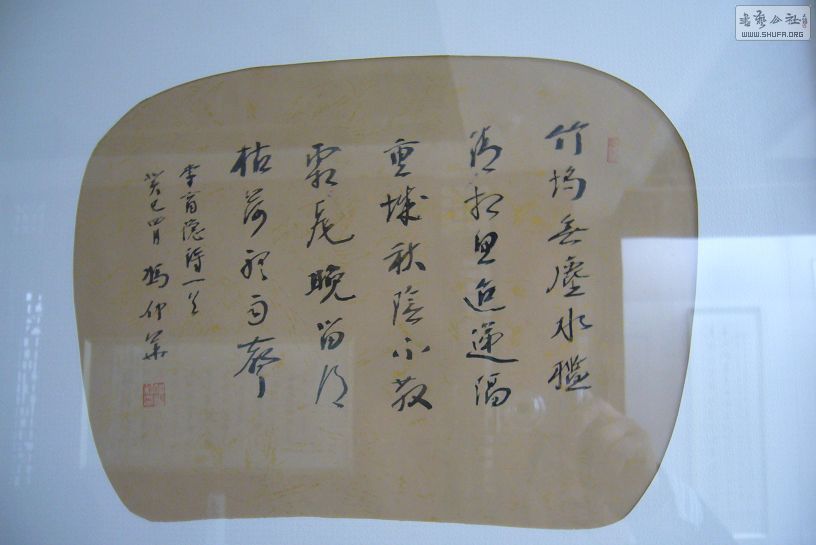 竹塢無塵水檻
清相思迢遞隔
重城秋陰不散
霜飛晚留得
枯荷聽雨聲
李商隱詩一首
癸巳四月
書藝公社
WWW.SHUFA.ORG